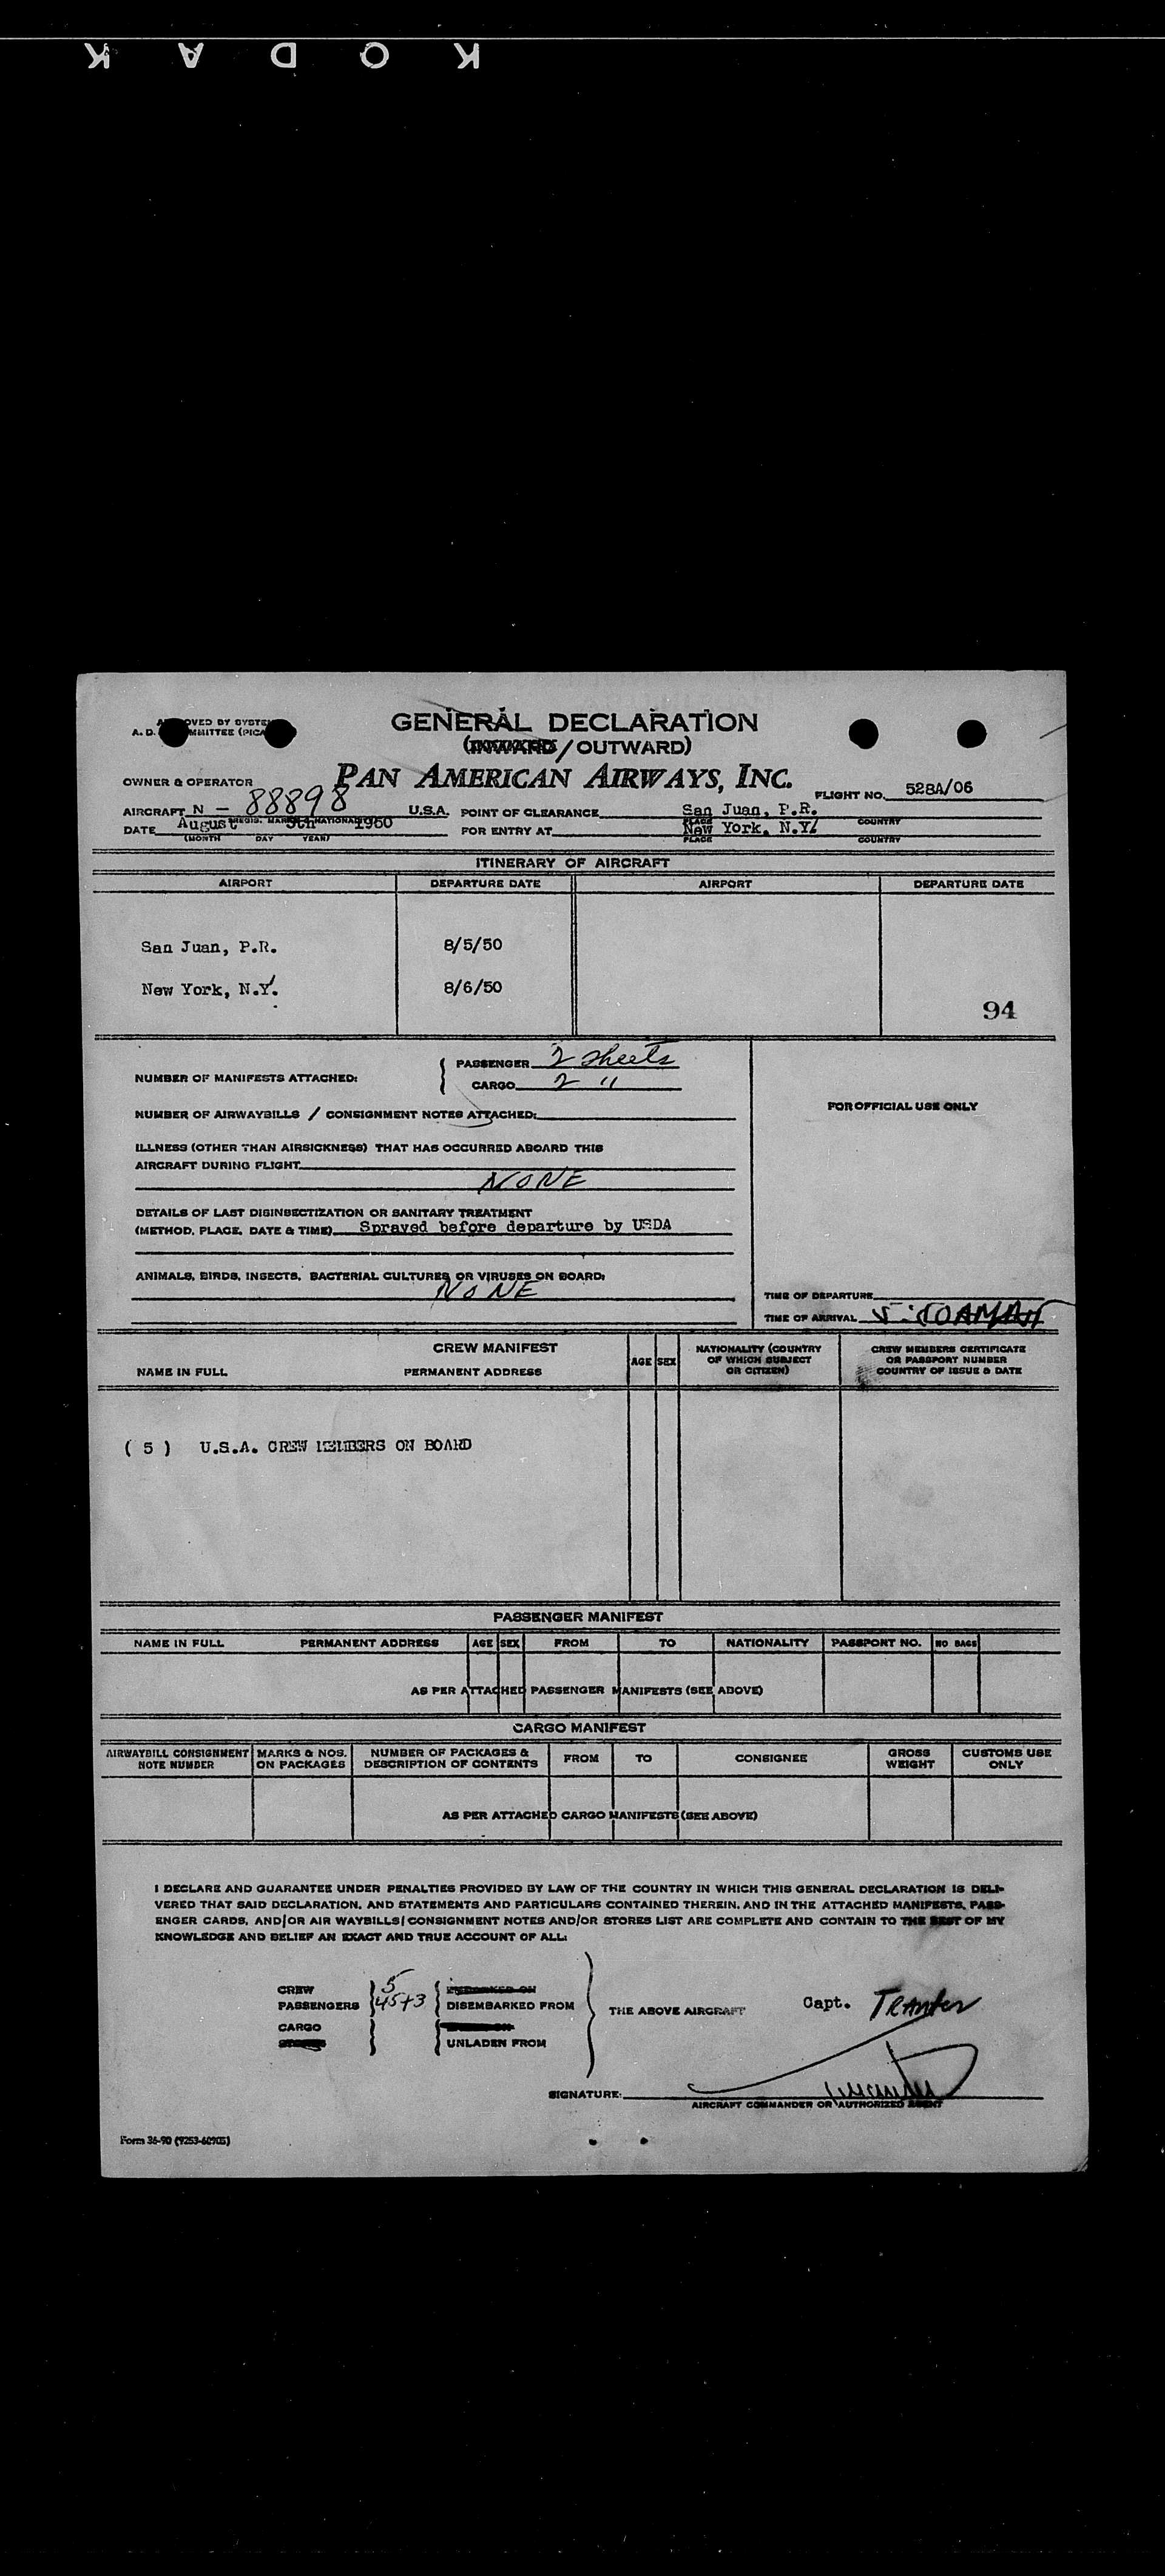 KODAK
APPROVED BY SYSTEM
A. D. COMMITTEE (PICA
GENERAL DECLARATION
(INWARD / OUTWARD)
OWNER & OPERATOR PAN AMERICAN AIRWAYS, INC.
FLIGHT NO. 528A/06
AIRCRAFT N - 88898 U.S.A. POINT OF CLEARANCE San Juan, P.R.
REGIS. MARK & NATIONALITY PLACE COUNTRY
DATE August 5th 1950 FOR ENTRY AT New York, N.Y.
(MONTH DAY YEAR) PLACE COUNTRY
ITINERARY OF AIRCRAFT
AIRPORT DEPARTURE DATE AIRPORT DEPARTURE DATE
San Juan, P.R. 8/5/50
New York, N.Y. 8/6/50
94
NUMBER OF MANIFESTS ATTACHED: { PASSENGER 2 sheets
CARGO 2 "
FOR OFFICIAL USE ONLY
NUMBER OF AIRWAYBILLS / CONSIGNMENT NOTES ATTACHED:
ILLNESS (OTHER THAN AIRSICKNESS) THAT HAS OCCURRED ABOARD THIS
AIRCRAFT DURING FLIGHT
NONE
DETAILS OF LAST DISINSECTIZATION OR SANITARY TREATMENT
(METHOD, PLACE, DATE & TIME) Sprayed before departure by USDA
ANIMALS, BIRDS, INSECTS, BACTERIAL CULTURES OR VIRUSES ON BOARD:
NONE
TIME OF DEPARTURE
TIME OF ARRIVAL
CREW MANIFEST
NAME IN FULL PERMANENT ADDRESS AGE SEX NATIONALITY (COUNTRY OF WHICH SUBJECT OR CITIZEN) CREW MEMBERS CERTIFICATE OR PASSPORT NUMBER COUNTRY OF ISSUE & DATE
( 5 ) U.S.A. CREW MEMBERS ON BOARD
PASSENGER MANIFEST
NAME IN FULL PERMANENT ADDRESS AGE SEX FROM TO NATIONALITY PASSPORT NO. NO BAGS
AS PER ATTACHED PASSENGER MANIFESTS (SEE ABOVE)
CARGO MANIFEST
AIRWAYBILL CONSIGNMENT NOTE NUMBER MARKS & NOS. ON PACKAGES NUMBER OF PACKAGES & DESCRIPTION OF CONTENTS FROM TO CONSIGNEE GROSS WEIGHT CUSTOMS USE ONLY
AS PER ATTACHED CARGO MANIFESTS (SEE ABOVE)
I DECLARE AND GUARANTEE UNDER PENALTIES PROVIDED BY LAW OF THE COUNTRY IN WHICH THIS GENERAL DECLARATION IS DELI-
VERED THAT SAID DECLARATION, AND STATEMENTS AND PARTICULARS CONTAINED THEREIN, AND IN THE ATTACHED MANIFESTS, PASS-
ENGER CARDS, AND/OR AIR WAYBILLS/CONSIGNMENT NOTES AND/OR STORES LIST ARE COMPLETE AND CONTAIN TO THE BEST OF MY
KNOWLEDGE AND BELIEF AN EXACT AND TRUE ACCOUNT OF ALL:
CREW 5
PASSENGERS 45+3 DISEMBARKED FROM THE ABOVE AIRCRAFT Capt. Tranter
CARGO
UNLADEN FROM
SIGNATURE:
AIRCRAFT COMMANDER OR AUTHORIZED AGENT
Form 36-90